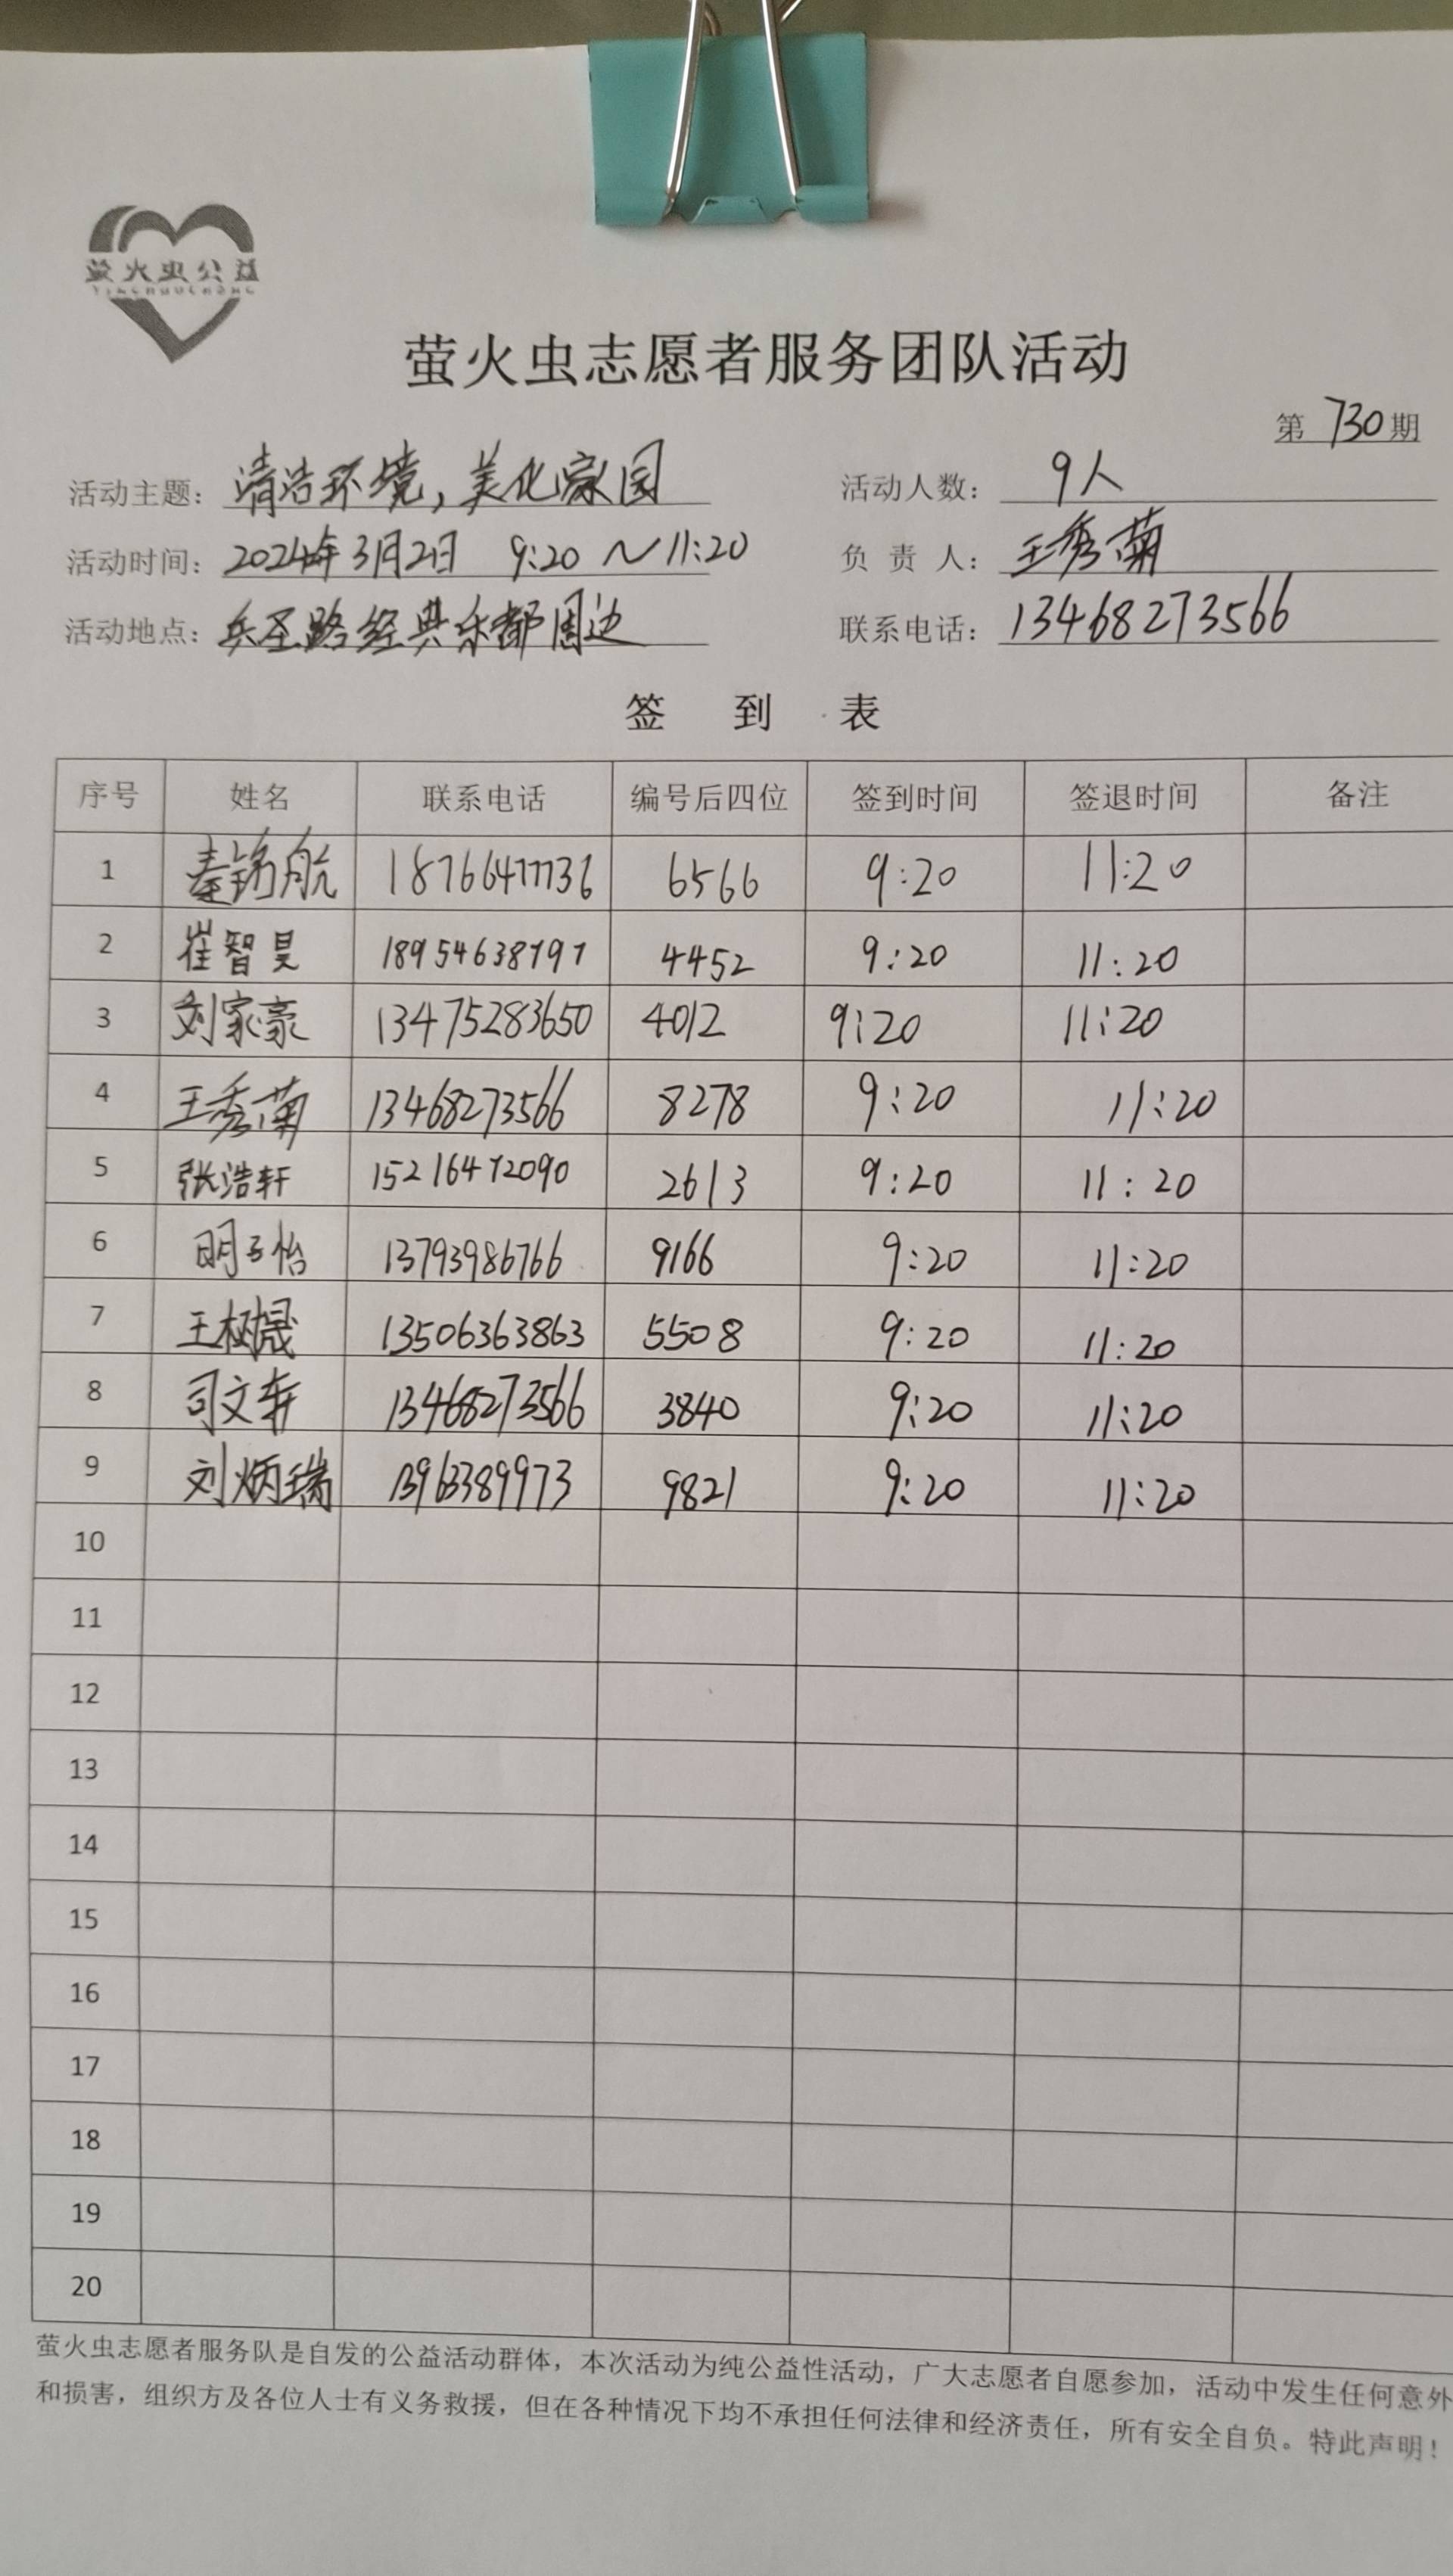 萤火虫公益
YINGHUOCHONG
萤火虫志愿者服务团队活动
第 730 期
活动主题: 清洁环境,美化家园 活动人数: 9人
活动时间: 2024年3月2日 9:20 ~ 11:20 负 责 人: 王秀菊
活动地点: 兵圣路经典乐都周边 联系电话: 13468273566
签 到 表
序号 姓名 联系电话 编号后四位 签到时间 签退时间 备注
1 秦铭航 18766477736 6566 9:20 11:20
2 崔智昊 18954638797 4452 9:20 11:20
3 刘家豪 13475283650 4012 9:20 11:20
4 王秀菊 13468273566 8278 9:20 11:20
5 张浩轩 15216472090 2613 9:20 11:20
6 明子怡 13793986766 9166 9:20 11:20
7 王树晟 13506363863 5508 9:20 11:20
8 司文轩 13468273566 3840 9:20 11:20
9 刘炳瑞 13963389973 9821 9:20 11:20
10
11
12
13
14
15
16
17
18
19
20
萤火虫志愿者服务队是自发的公益活动群体，本次活动为纯公益性活动，广大志愿者自愿参加，活动中发生任何意外
和损害，组织方及各位人士有义务救援，但在各种情况下均不承担任何法律和经济责任，所有安全自负。特此声明！